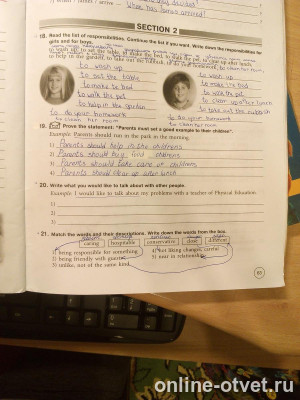 What has Boris arrived?
SECTION 2
18. Read the list of responsibilities. Continue the list if you want. Write down the responsibilities for
girls and for boys.
to wash up, to set the table, to make the bed, to walk the pet, to clean up after lunch,
to help in the garden, to take out the rubbish,
to wash up
to set the table
to make to bed
to walk the pet
to help in the garden
to do your homework
to clean her room
to wash up
to make the bed
to walk the pet
to clean up after lunch
to take out the rubbish
to do your homework
19. Prove the statement: "Parents must set a good example to their children".
Example: Parents should run in the park in the morning.
1) Parents should help to the childrens
2) Parents should buy food childrens
3) Parents should take care of childrens
4) Parents should clean up after lunch
20. Write what you would like to talk about with other people.
Example: I would like to talk about my problems with a teacher of Physical Education.
1.
2.
3.
21. Match the words and their descriptions. Write down the words from the box.
caring hospitable conservative close different
1) being responsible for something
2) being friendly with guests
3) unlike, not of the same kind
4) not liking changes, careful
5) near in relationship
63
online-otvet.ru